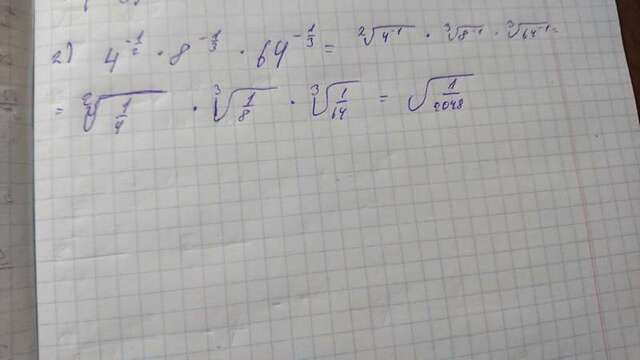 2) 4^{-\frac{1}{2}} · 8^{-\frac{1}{3}} · 64^{-\frac{1}{3}} = \sqrt[2]{4^{-1}} · \sqrt[3]{8^{-1}} · \sqrt[3]{64^{-1}} =
= \sqrt[2]{\frac{1}{4}} · \sqrt[3]{\frac{1}{8}} · \sqrt[3]{\frac{1}{64}} = \sqrt{\frac{1}{2048}}